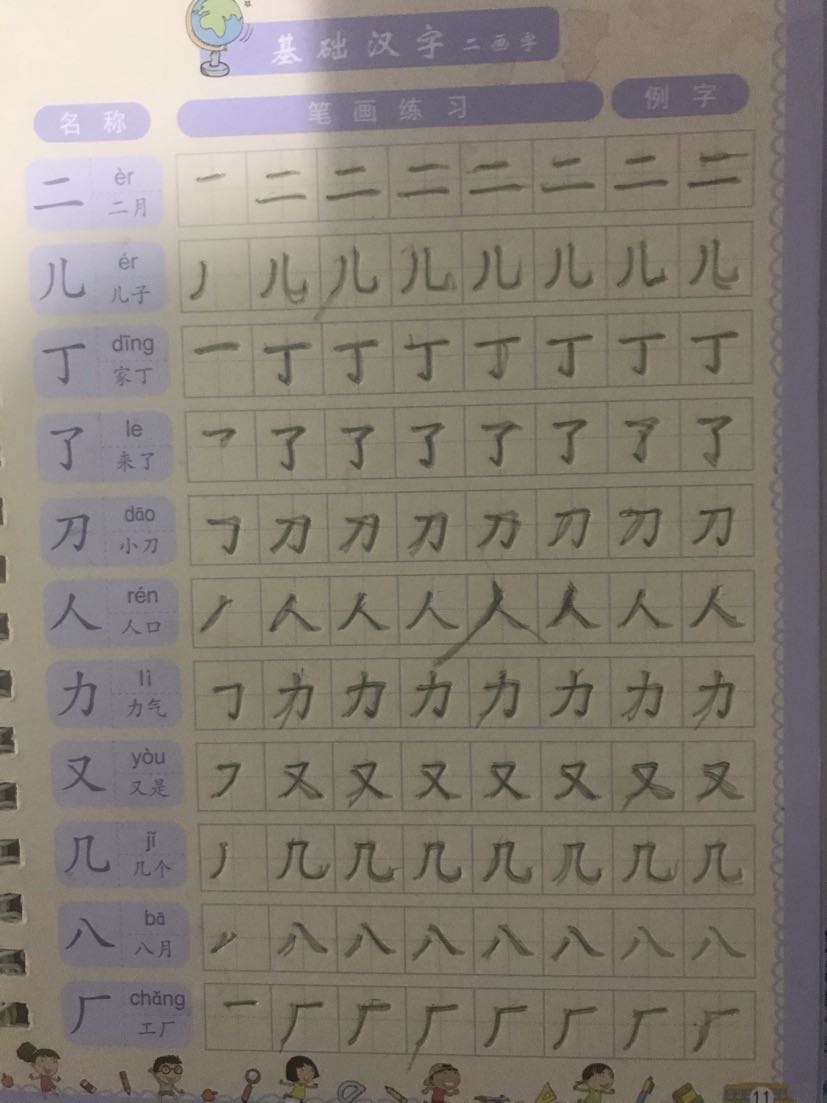 基础汉字 二画字
名称 笔画练习 例字
二 èr 二月 一 二 二 二 二 二 二 二
儿 ér 儿子 丿 儿 儿 儿 儿 儿 儿 儿
丁 dīng 家丁 一 丁 丁 丁 丁 丁 丁 丁
了 le 来了 乛 了 了 了 了 了 了 了
刀 dāo 小刀 𠃌 刀 刀 刀 刀 刀 刀 刀
人 rén 人口 丿 人 人 人 人 人 人 人
力 lì 力气 𠃌 力 力 力 力 力 力 力
又 yòu 又是 ㇇ 又 又 又 又 又 又 又
几 jǐ 几个 丿 几 几 几 几 几 几 几
八 bā 八月 丿 八 八 八 八 八 八 八
厂 chǎng 工厂 一 厂 厂 厂 厂 厂 厂 厂
11